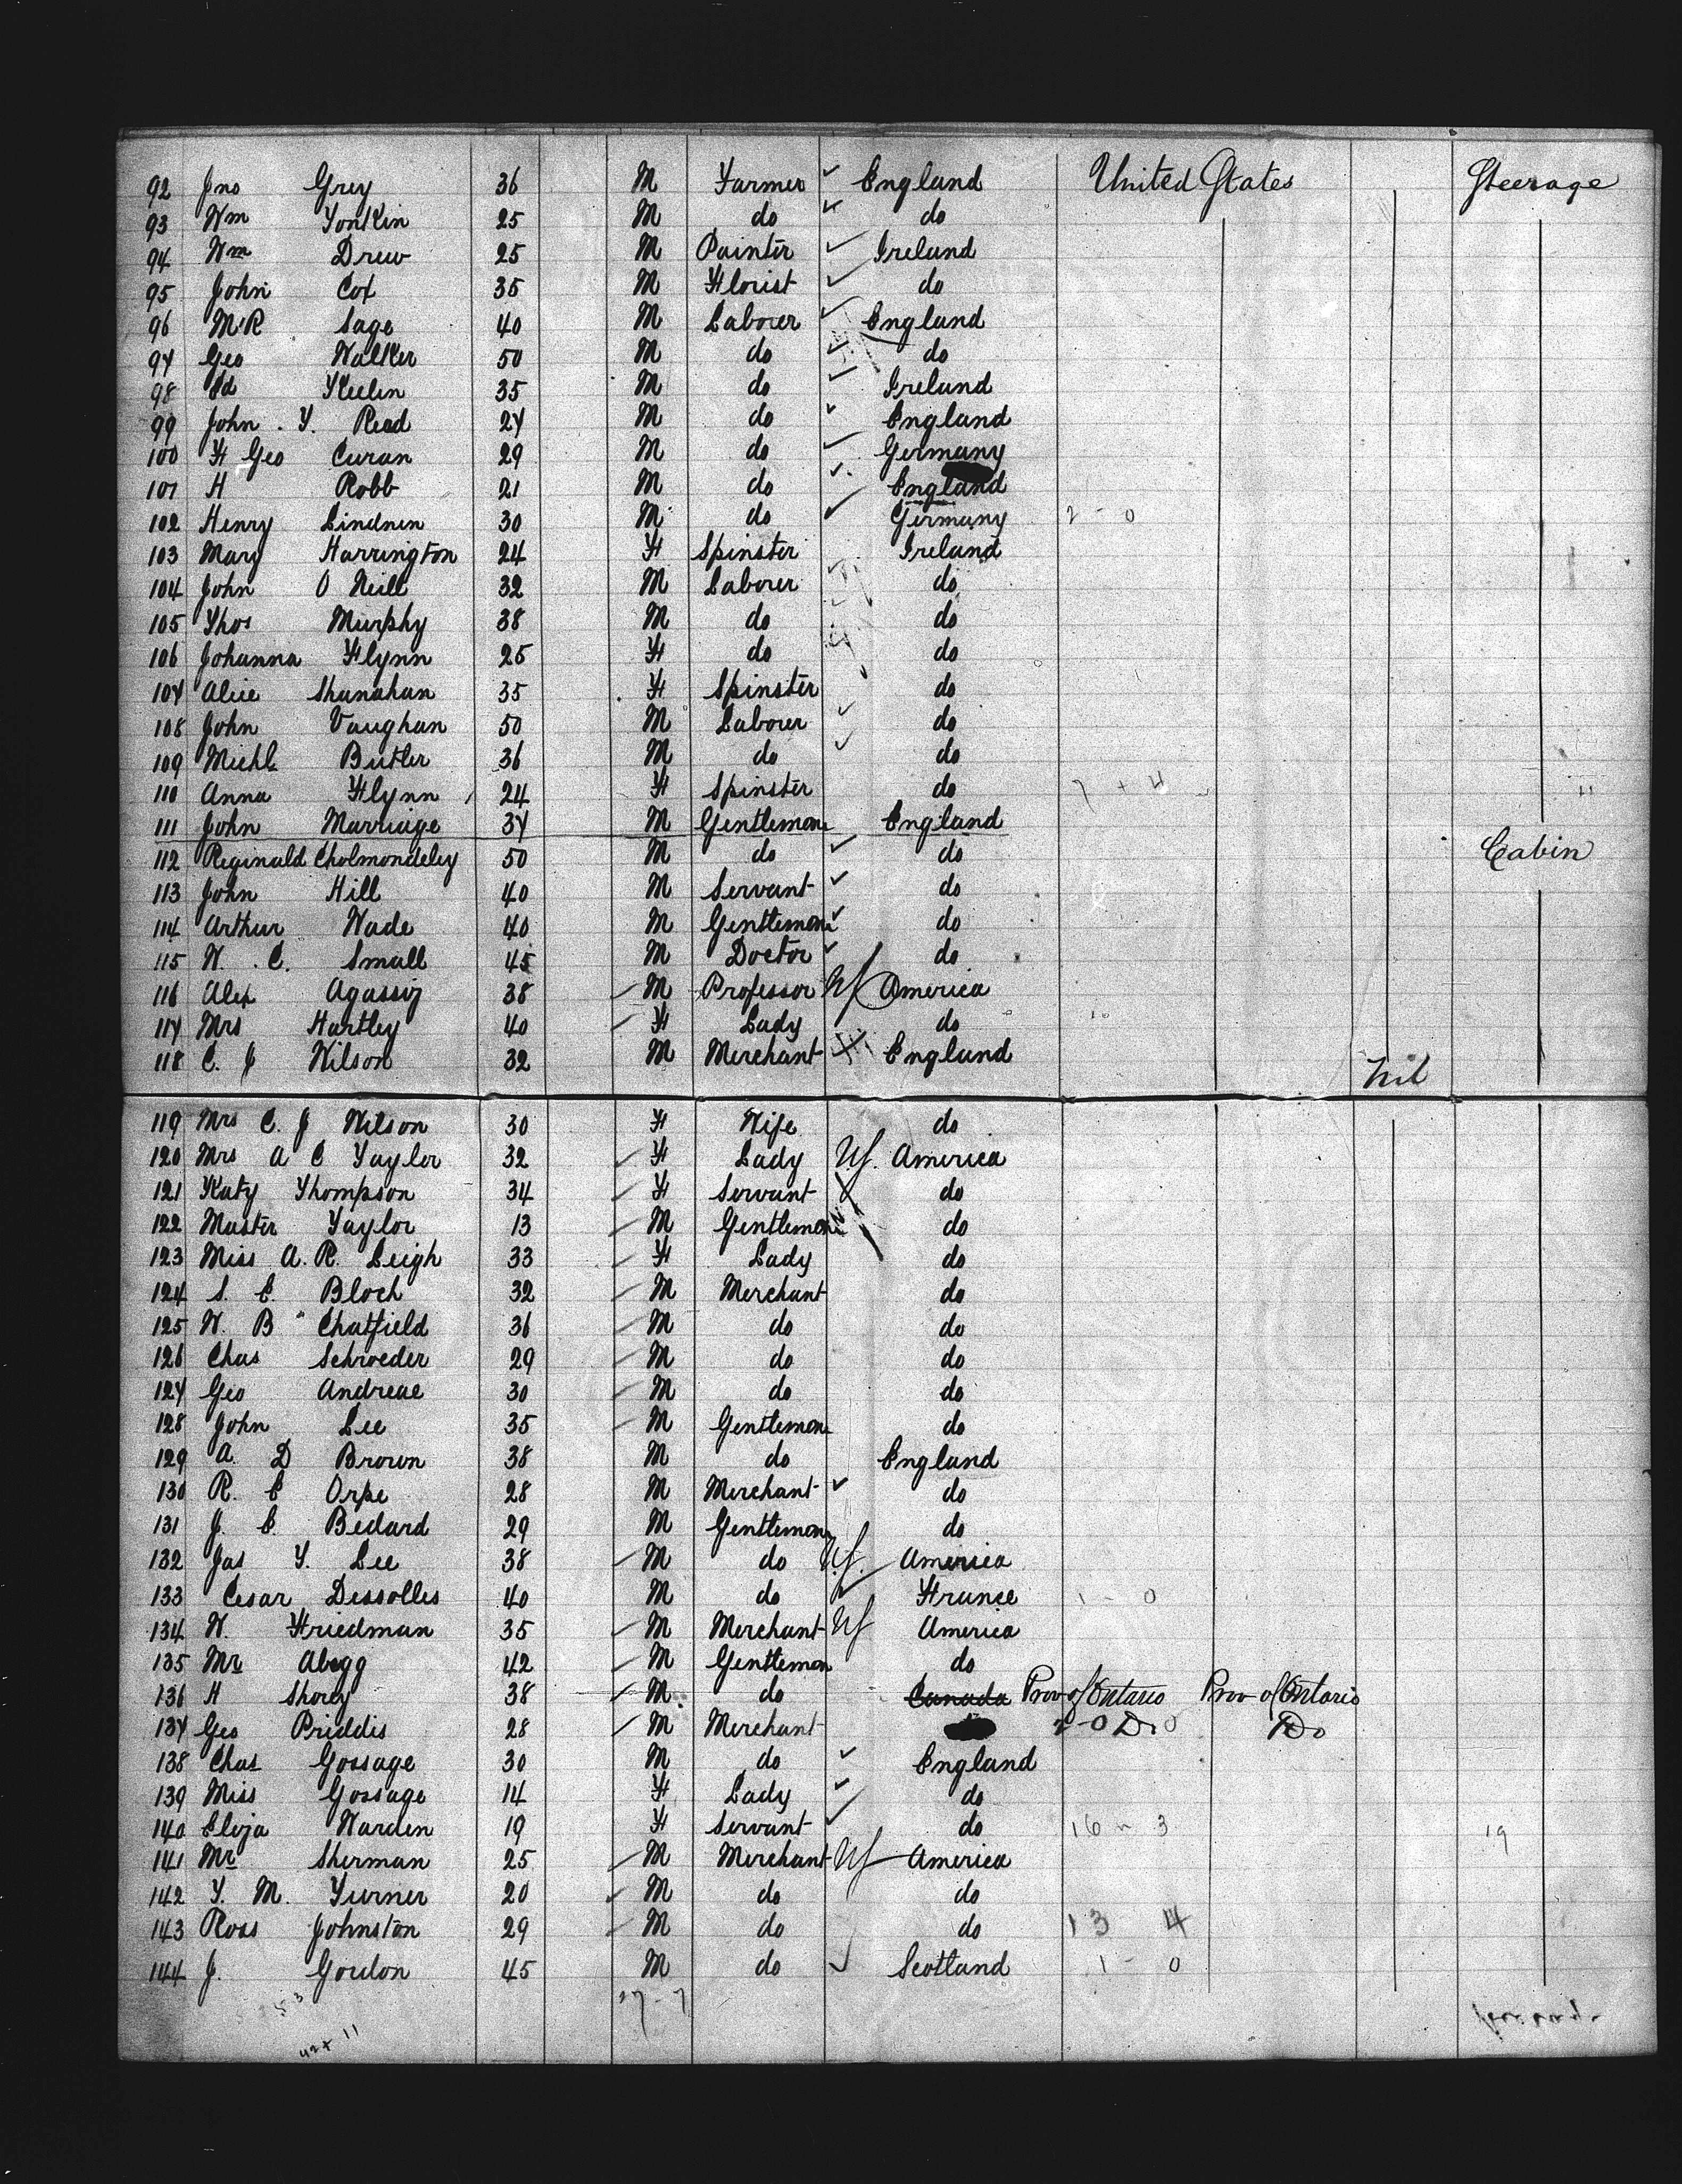 92 Jno Grey 36 M Farmer England United States Steerage
93 Wm Tonkin 25 M do do
94 Wm Drew 25 M Painter Ireland
95 John Cox 35 M Florist do
96 Mr R Sage 40 M Laborer England
97 Geo Walker 50 M do do
98 Ed Keelin 35 M do Ireland
99 John . T. Read 27 M do England
100 F Geo Curan 29 M do Germany
101 H Robb 21 M do England
102 Henry Lindnen 30 M do Germany 2 - 0
103 Mary Harrington 24 F Spinster Ireland
104 John O Neill 32 M Laborer do
105 Thos Murphy 38 M do do
106 Johanna Flynn 25 F do do
107 Alice Shanahan 35 F Spinster do
108 John Vaughan 50 M Laborer do
109 Michl Butler 36 M do do
110 Anna Flynn 24 F Spinster do 7 + 4
111 John Marriage 37 M Gentleman England
112 Reginald Cholmondeley 50 M do do Cabin
113 John Hill 40 M Servant do
114 Arthur Wade 40 M Gentleman do
115 W. C. Small 45 M Doctor do
116 Alex Agassiz 38 M Professor US America
117 Mrs Hartley 40 F Lady do
118 C. J Wilson 32 M Merchant England
Nil
119 Mrs C. J Wilson 30 F Wife do
120 Mrs A C Taylor 32 F Lady US. America
121 Katy Thompson 34 F Servant do
122 Master Taylor 13 M Gentleman do
123 Miss A. R. Leigh 33 F Lady do
124 S. E. Bloch 32 M Merchant do
125 W. B Chatfield 36 M do do
126 Chas Schroeder 29 M do do
127 Geo Andreae 30 M do do
128 John Lee 35 M Gentleman do
129 A. D Brown 38 M do England
130 R. E Orpe 28 M Merchant do
131 J. E. Bedard 29 M Gentleman do
132 Jas T. Lee 38 M do U.S. America
133 Cesar Dessolles 40 M do France 1 - 0
134 W. Friedman 35 M Merchant US America
135 Mr Abegg 42 M Gentleman do
136 H Shorey 38 M do Canada Prov of Ontario Prov of Ontario
137 Geo Priddis 28 M Merchant 2-0 Do Do
138 Chas Gossage 30 M do England
139 Miss Gossage 14 F Lady do
140 Eliza Warden 19 F Servant do 16 - 3 19
141 Mr Sherman 25 M Merchant US America
142 T. M. Turner 20 M do do
143 Ross Johnston 29 M do do 13 4
144 J. Gordon 45 M do Scotland 1 - 0